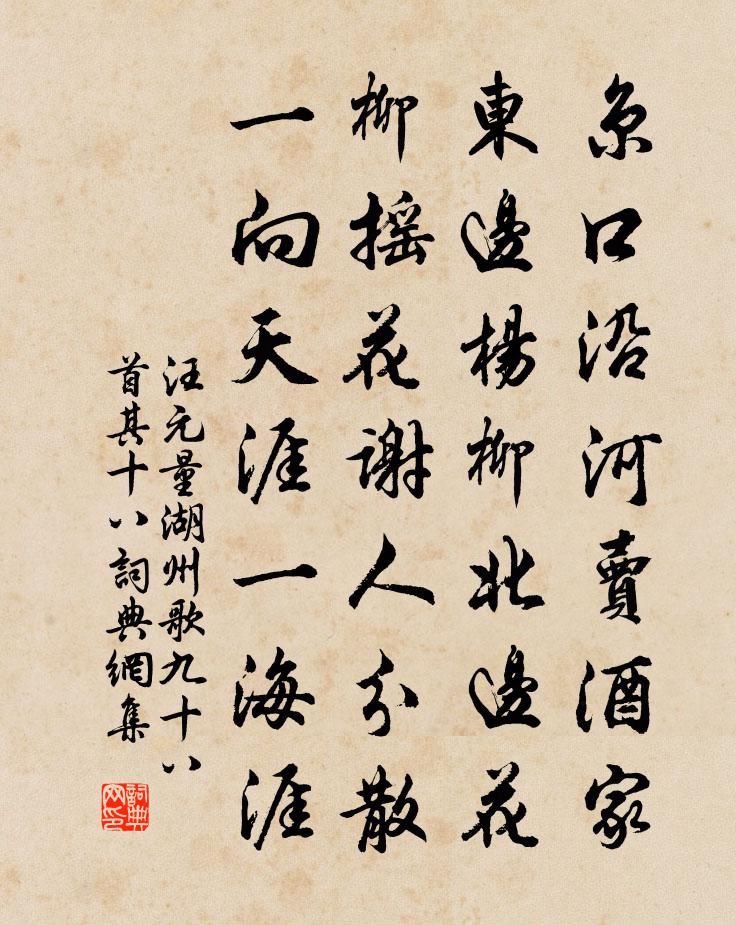 京口沿河賣酒家
東邊楊柳北邊花
柳搖花謝人分散
一向天涯一海涯
汪元量湖州歌九十八
首其十八詞典網集
詞典網印